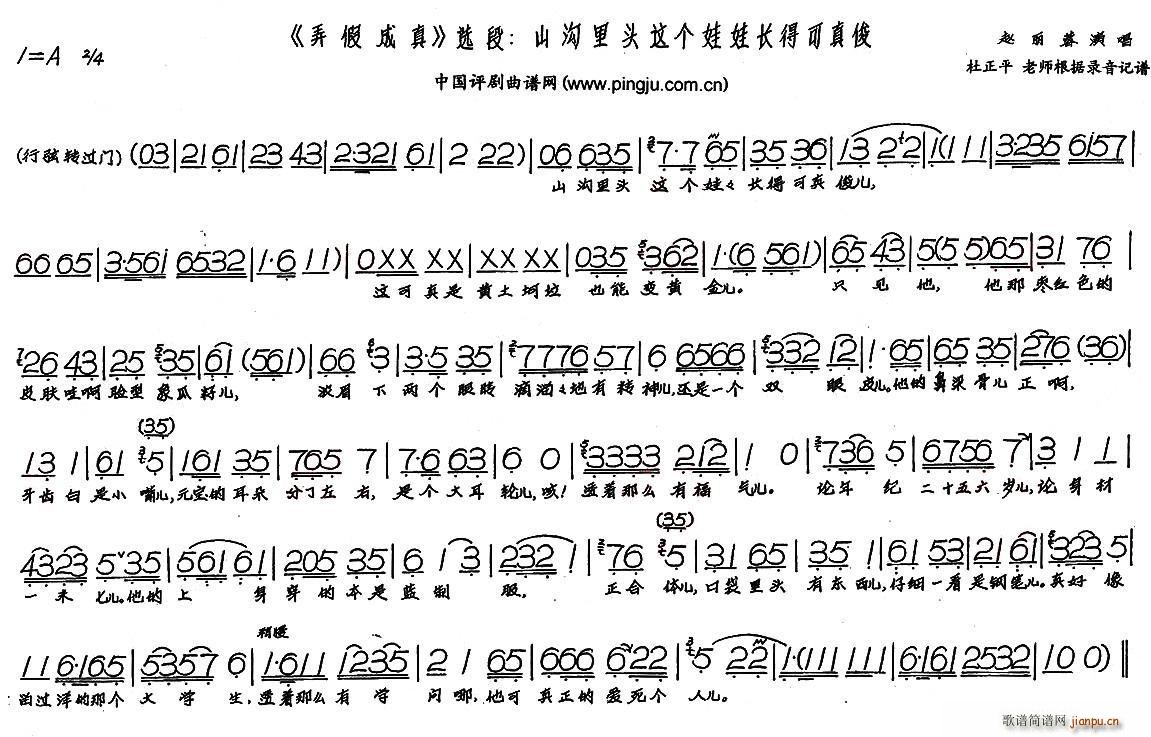 《弄假成真》选段：山沟里头这个娃娃长得可真俊
1=A 2/4
赵丽蓉演唱
中国评剧曲谱网(www.pingju.com.cn)
杜正平 老师根据录音记谱
(行弦转过门) (03|21 61|23 43|2·321 61|2 22)|06 635|7·7 65|35 36|13 22|1(111|3·235 6157|
山沟里头 这个娃々 长得可真 俊儿,
66 65|3·561 6532|1·6 11)|0XX XX|XX XX|035 362|1·(6 561)|65 43|5(5 5)65|31 76|
这可真是 黄土坷垃 也能变黄 金儿。 只见他, 他那枣红色的
26 43|25 35|61 (561)|66 3|3·5 35|7776 57|6 6566|332 12|1·65|65 35|276 (36)|
皮肤哇啊 脸型象瓜籽儿, 淡眉下两个眼睛滴溜々地有转神儿,还是一个双眼皮儿。他的鼻梁骨儿正啊,
(35)
13 1|61 5|161 35|765 7|7·6 63|6 0|3333 212|1 0|736 5|6756 7|3 11|
牙齿白是小嘴儿,元宝的耳朵分了左右,是个大耳轮儿,咳！透着那么有福气儿。论年纪二十五六岁儿,论身材
(35)
4323 535|561 61|205 35|6 13|232 1|76 5|31 65|35 1|61 53|21 61|323 5|
一米七儿。他的上身穿的本是蓝制服。正合体儿,口袋里头有东西儿,仔细一看是钢笔儿。真好像
稍慢
11 6·165|5357 6|1·611 1235|2 1 65|666 622|5 22|1·(111 111|6·161 2532|100)‖
泊过洋的那个大学生,透着那么有学问哪,他可真正的爱死个人儿。
歌谱简谱网
jianpu.cn